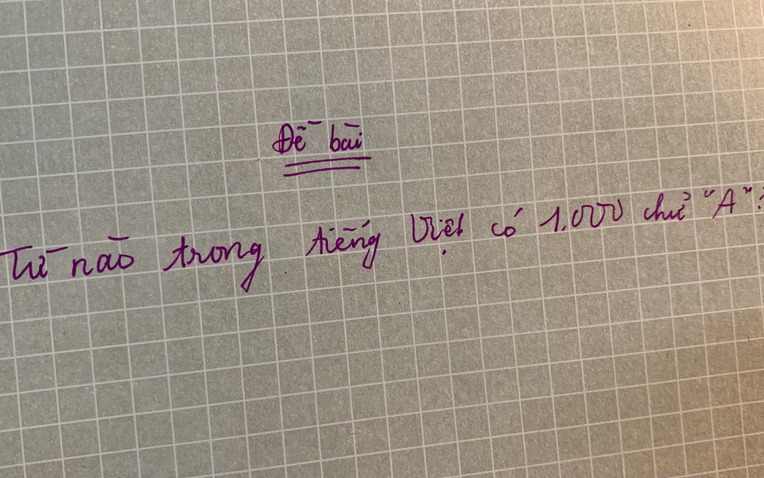 Đề bài
Từ nào trong tiếng Việt có 1.000 chữ "A"?